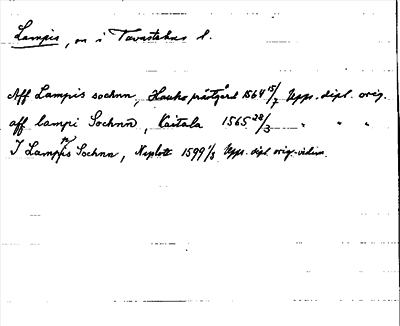 Lampis, sn i Tavastehus l.
Aff Lampis sochnn, Hauho prästgård 1564 15/7 Upps. dipl. orig.
aff lampi Sochnn, Kaitala 1565 28/3 " " "
I Lampis Sochnn, 1599 1/3 Upps. dipl. orig.-vidim.